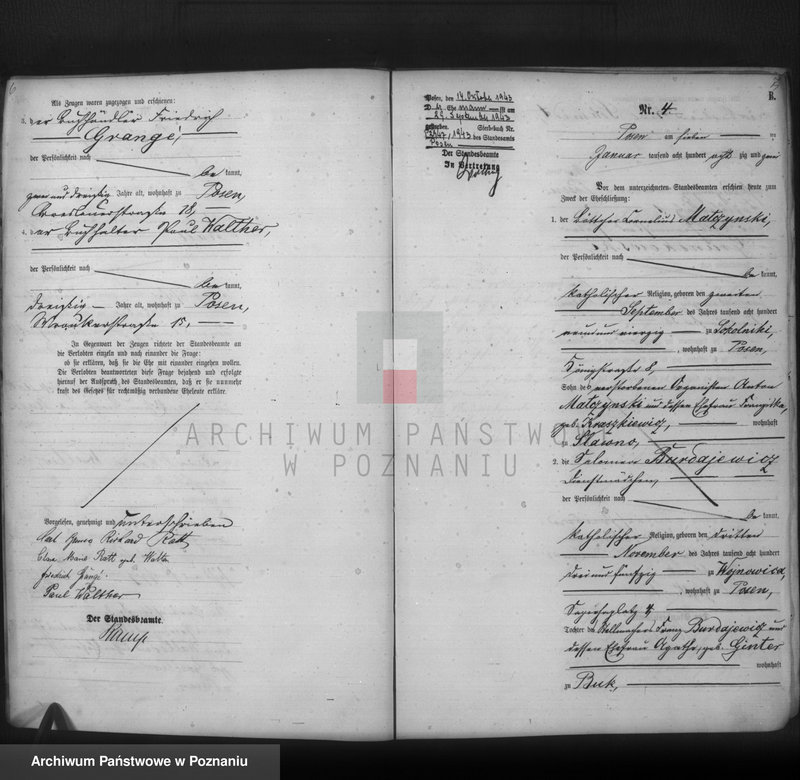 6
Als Zeugen waren zugezogen und erschienen:
3. der Buchhändler Friedrich
Grangé,
der Persönlichkeit nach
be kannt,
zwei und dreißig Jahre alt, wohnhaft zu Posen,
Breslauerstraße 18,
4. der Buchhalter Paul Walther,
der Persönlichkeit nach
be kannt,
dreißig Jahre alt, wohnhaft zu Posen,
15,
In Gegenwart der Zeugen richtete der Standesbeamte an
die Verlobten einzeln und nach einander die Frage:
ob sie erklären, daß sie die Ehe mit einander eingehen wollen.
Die Verlobten beantworteten diese Frage bejahend und erfolgte
hierauf der Ausspruch des Standesbeamten, daß er sie nunmehr
kraft des Gesetzes für rechtmäßig verbundene Eheleute erkläre.
Vorgelesen, genehmigt und unterschrieben
Richard Ratt
Marie Ratt geb. Walter
Friedrich
Paul Walther
Der Standesbeamte.
Kamp
Posen, den 14. Oktober 1943
D er Ehe mann ist am
29. September 1943
gestorben. Sterbebuch Nr.
1943 des Standesamts
Posen
Der Standesbeamte
In Vertretung
B.
Nr. 4
Posen am sieben ten
Januar tausend acht hundert acht zig und zwei
Vor dem unterzeichneten Standesbeamten erschien heute zum
Zweck der Eheschließung:
1. der Böttcher Cornelius Matczynski,
der Persönlichkeit nach
be kannt,
katholischer Religion, geboren den zweiten
September des Jahres tausend acht hundert
neun und vierzig zu Sokolniki,
, wohnhaft zu Posen,
Königstraße 8,
Sohn des verstorbenen Organisten Anton
Matczynski und dessen Ehefrau Franziska,
geb. Kraszkiewicz, wohnhaft
zu Slawno,
2. die Salomea Burdajewicz
Dienstmädchen,
der Persönlichkeit nach
be kannt,
katholischer Religion, geboren den dritten
November des Jahres tausend acht hundert
drei und fünfzig zu Wojnowice,
, wohnhaft zu Posen,
Sapiehaplatz 4,
Tochter des Stellmachers Franz Burdajewicz und
dessen Ehefrau Agathe, geb. Ginter
wohnhaft
zu Buk,
ARCHIWUM PAŃSTWO
W POZNANIU
Archiwum Państwowe w Poznaniu